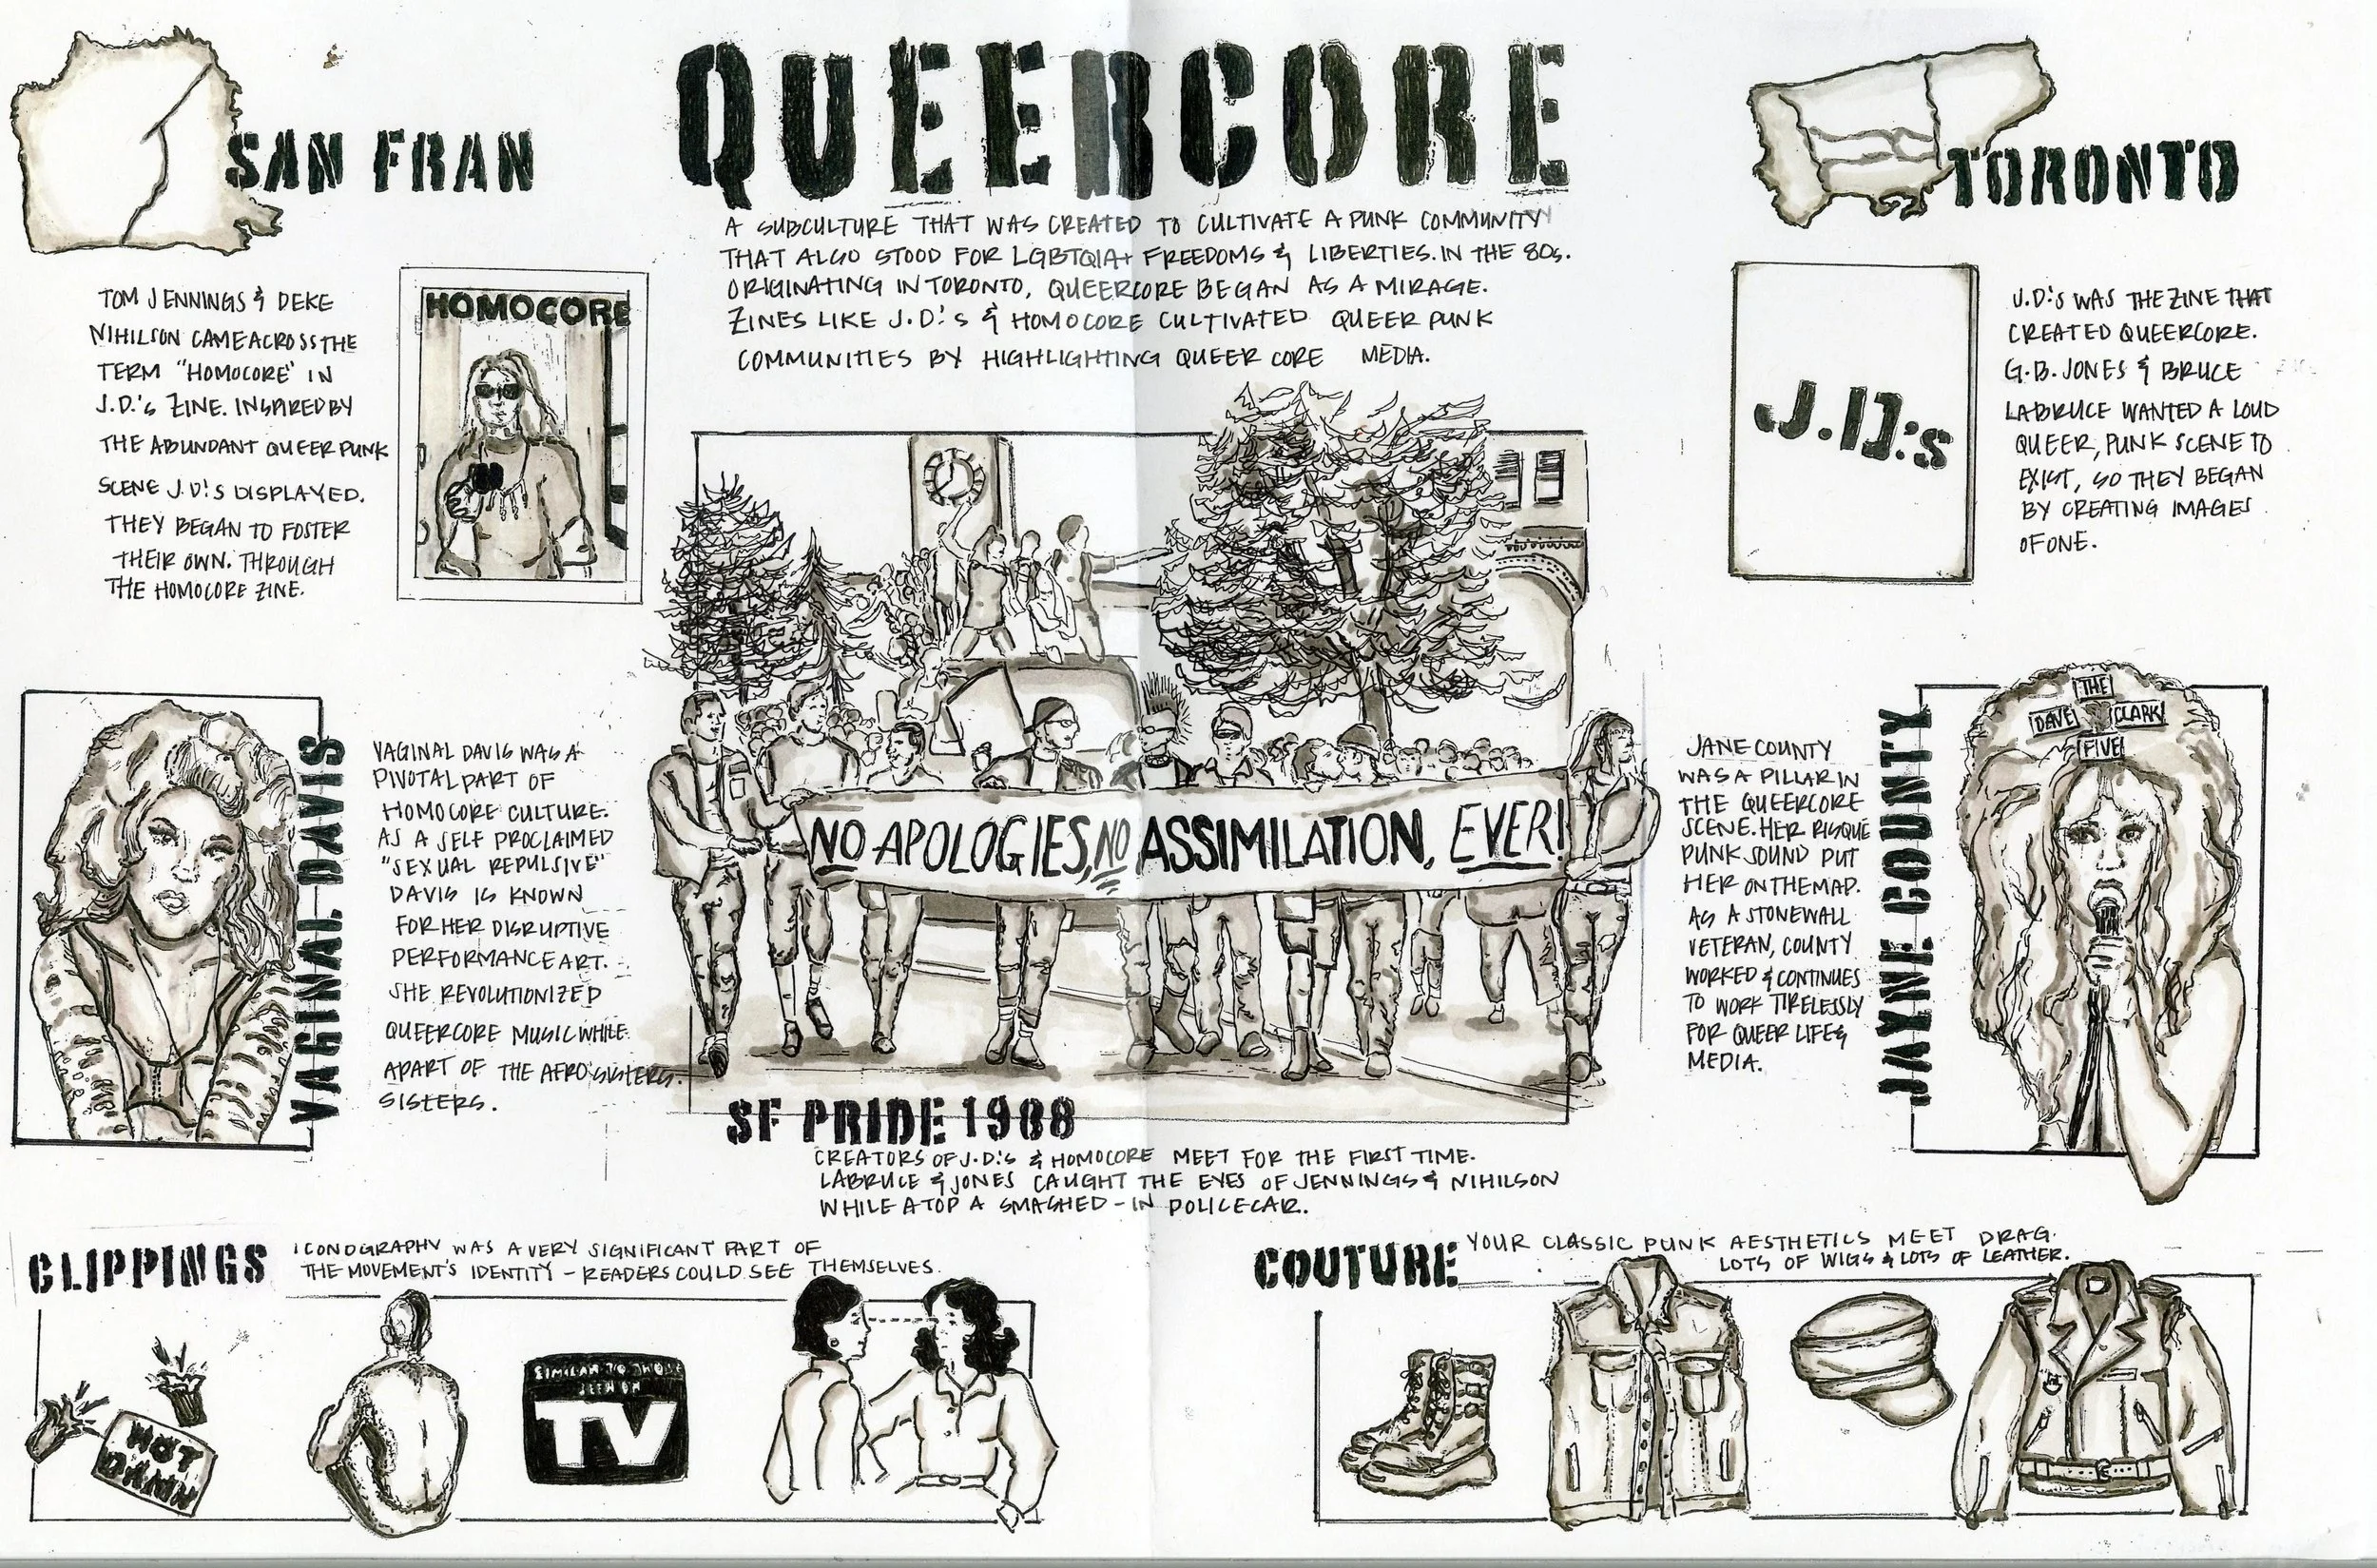 QUEERCORE
A SUBCULTURE THAT WAS CREATED TO CULTIVATE A PUNK COMMUNITY
THAT ALSO STOOD FOR LGBTQIA+ FREEDOMS & LIBERTIES. IN THE 80s.
ORIGINATING IN TORONTO, QUEERCORE BEGAN AS A MIRAGE.
ZINES LIKE J.D.'s & HOMOCORE CULTIVATED QUEER PUNK
COMMUNITIES BY HIGHLIGHTING QUEER CORE MEDIA.
SAN FRAN
TOM JENNINGS & DEKE
NIHILSON CAME ACROSS THE
TERM "HOMOCORE" IN
J.D.'s ZINE. INSPIRED BY
THE ABUNDANT QUEER PUNK
SCENE J.D.'S DISPLAYED.
THEY BEGAN TO FOSTER
THEIR OWN. THROUGH
THE HOMOCORE ZINE.
HOMOCORE
TORONTO
J.D.:s
J.D.'s WAS THE ZINE THAT
CREATED QUEERCORE.
G.B. JONES & BRUCE
LABRUCE WANTED A LOUD
QUEER, PUNK SCENE TO
EXIST, SO THEY BEGAN
BY CREATING IMAGES
OF ONE.
VAGINAL DAVIS
VAGINAL DAVIS WAS A
PIVOTAL PART OF
HOMOCORE CULTURE.
AS A SELF PROCLAIMED
"SEXUAL REPULSIVE"
DAVIS IS KNOWN
FOR HER DISRUPTIVE
PERFORMANCE ART.
SHE REVOLUTIONIZED
QUEERCORE MUSIC WHILE
APART OF THE AFRO SISTERS.
SISTERS.
NO APOLOGIES, NO ASSIMILATION, EVER!
SF PRIDE 1988
CREATORS OF J.D.'s & HOMOCORE MEET FOR THE FIRST TIME.
LABRUCE & JONES CAUGHT THE EYES OF JENNINGS & NIHILSON
WHILE ATOP A SMASHED-IN POLICECAR.
JANE COUNTY
WAS A PILLAR IN
THE QUEERCORE
SCENE. HER RISQUE
PUNK SOUND PUT
HER ON THE MAP.
AS A STONEWALL
VETERAN, COUNTY
WORKED & CONTINUES
TO WORK TIRELESSLY
FOR QUEER LIFE &
MEDIA.
JAYNE COUNTY
THE
DAVE CLARK
FIVE
CLIPPINGS
ICONOGRAPHY WAS A VERY SIGNIFICANT PART OF
THE MOVEMENT'S IDENTITY - READERS COULD SEE THEMSELVES.
HOT
DAMN
SIMILAR TO THOSE
SEEN ON
TV
COUTURE
YOUR CLASSIC PUNK AESTHETICS MEET DRAG.
LOTS OF WIGS & LOTS OF LEATHER.